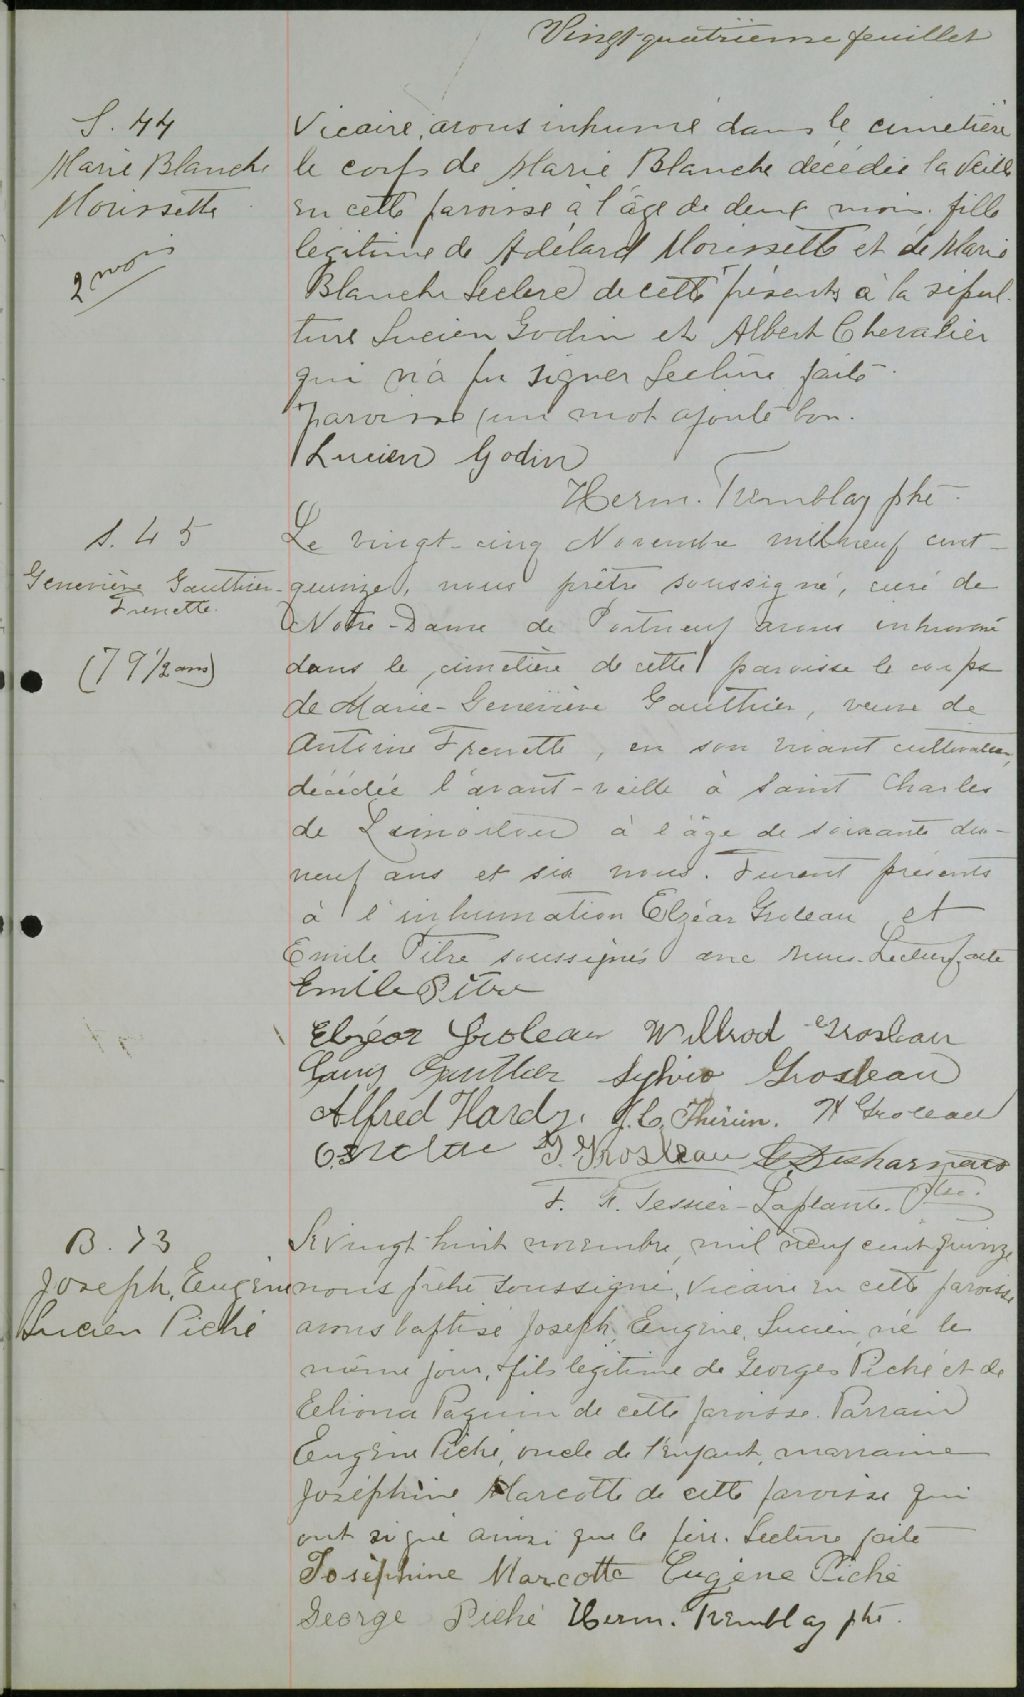 Vingt-quatrième feuillet
S. 44
Marie Blanche
Morissette
2 mois
Vicaire, avons inhumé dans le cimetière
le corps de Marie Blanche décédée la veille
en cette paroisse à l'âge de deux mois. fille
légitime de Adélard Morissette et de Marie
Blanche Leclerc de cette présents à la sépul-
ture Lucien Godin et Albert Chevalier
qui n'a pu signer Lecture faite.
paroisse (un mot ajouté bon.
Lucien Godin
Herm. Tremblay ptre.
S. 45
Geneviève Gauthier-
Frenette.
(79 1/2 ans)
Le vingt-cinq Novembre mil neuf cent-
quinze, nous prêtre soussigné, curé de
Notre-Dame de Portneuf avons inhumé
dans le cimetière de cette paroisse le corps
de Marie-Geneviève Gauthier, veuve de
Antoine Frenette, en son vivant cultivateur,
décédée l'avant-veille à Saint Charles
de Limoilou à l'âge de soixante dix-
neuf ans et six mois. Furent présents
à l'inhumation Elzéar Groleau et
Emile Pitre soussignés avec nous. Lecture faite
Emile Pitre
Elzéar Groleau Wilbrod Grosleau
Gauthier Sylvio Grosleau
Alfred Hardy. J. C. Thérien. H Groleau
G. Grosleau Desharnais
F. X. Tessier-Laplante. Ptre.
B. 73
Joseph, Eugène
Lucien Piché
Le vingt-huit novembre, mil neuf cent quinze
nous prêtre soussigné, Vicaire en cette paroisse
avons baptisé Joseph, Eugène, Lucien, né le
même jour, fils légitime de Georges Piché et de
Eliona Paquin de cette paroisse. Parrain
Eugène Piché, oncle de l'enfant, marraine
Joséphine Marcotte de cette paroisse qui
ont signé ainsi que le père. Lecture faite
Joséphine Marcotte Eugène Piché
George Piché Herm. Tremblay ptre.